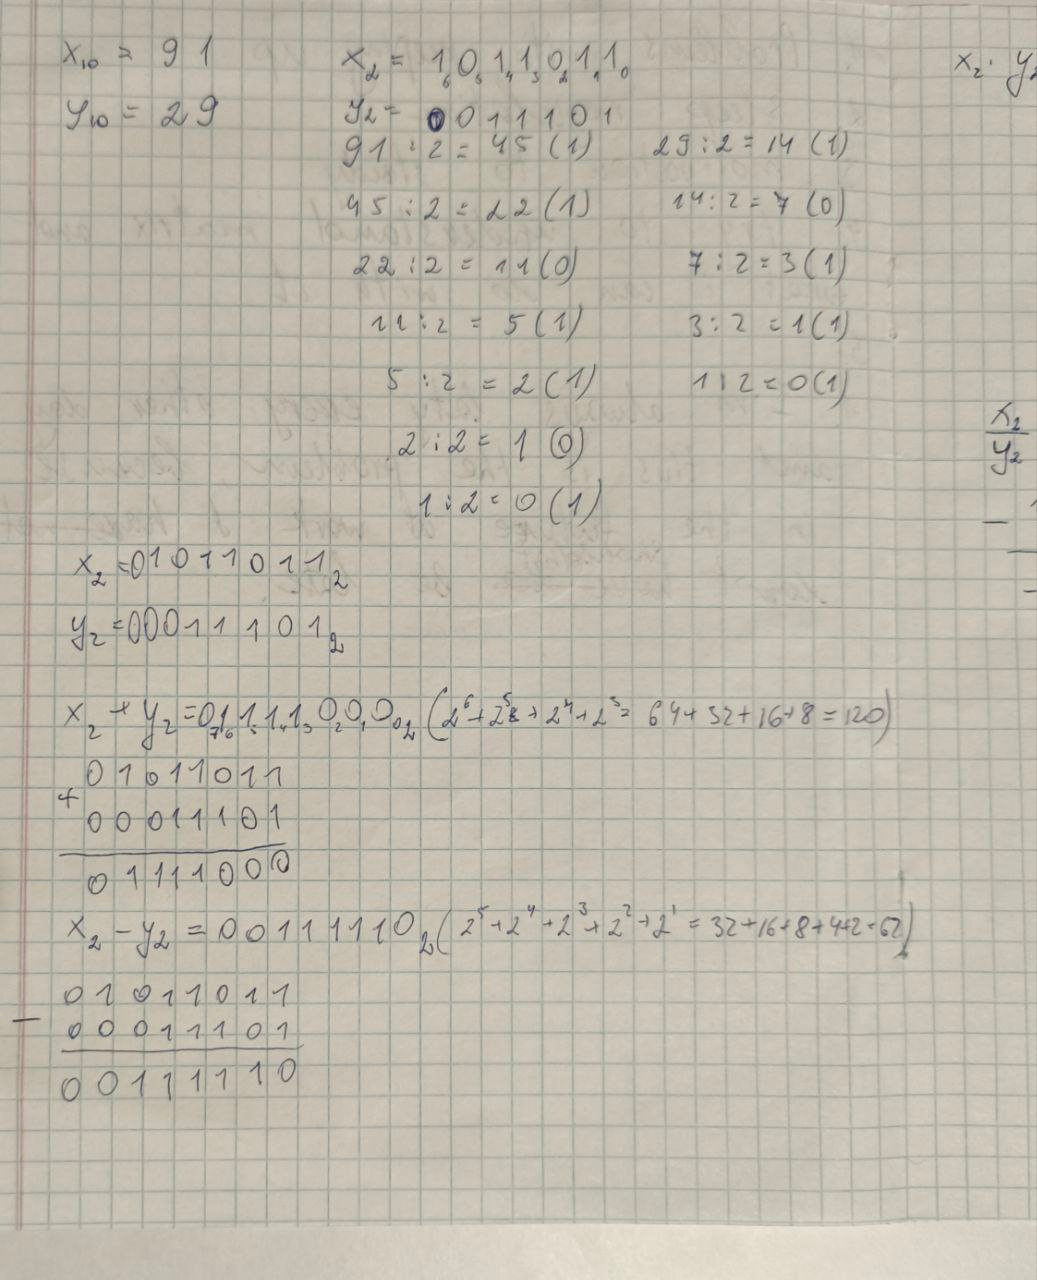 x₁₀ = 91
y₁₀ = 29
x₂ = 1₆0₅1₄1₃0₂1₁1₀
y₂ = 0011101
91 : 2 = 45 (1)
45 : 2 = 22 (1)
22 : 2 = 11 (0)
11 : 2 = 5 (1)
5 : 2 = 2 (1)
2 : 2 = 1 (0)
1 : 2 = 0 (1)
29 : 2 = 14 (1)
14 : 2 = 7 (0)
7 : 2 = 3 (1)
3 : 2 = 1 (1)
1 : 2 = 0 (1)
x₂ = 01011011₂
y₂ = 00011101₂
x₂ + y₂ = 0₇1₆1₅1₄1₃0₂0₁0₀₂ (2⁶ + 2⁵ + 2⁴ + 2³ = 64 + 32 + 16 + 8 = 120)
01011011
+
00011101
01111000
x₂ - y₂ = 00111110₂ (2⁵ + 2⁴ + 2³ + 2² + 2¹ = 32 + 16 + 8 + 4 + 2 = 62)
01011011
−
00011101
00111110
x₂ · y₂
x₂
y₂